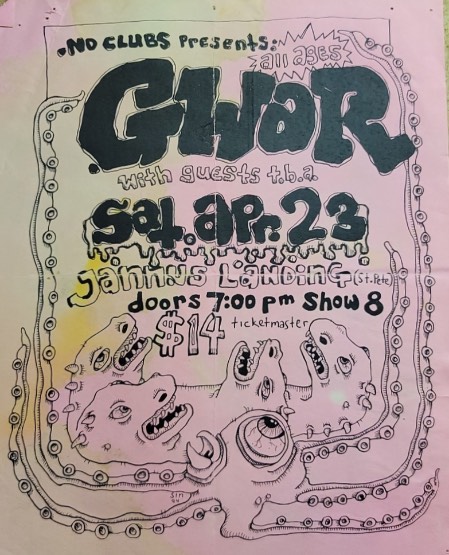 .NO CLUBS Presents:
all ages
GWAR
with guests t.b.a.
Sat. apr. 23
Jannus Landing (St. Pete)
doors 7:00 pm Show 8
$14 ticketmaster